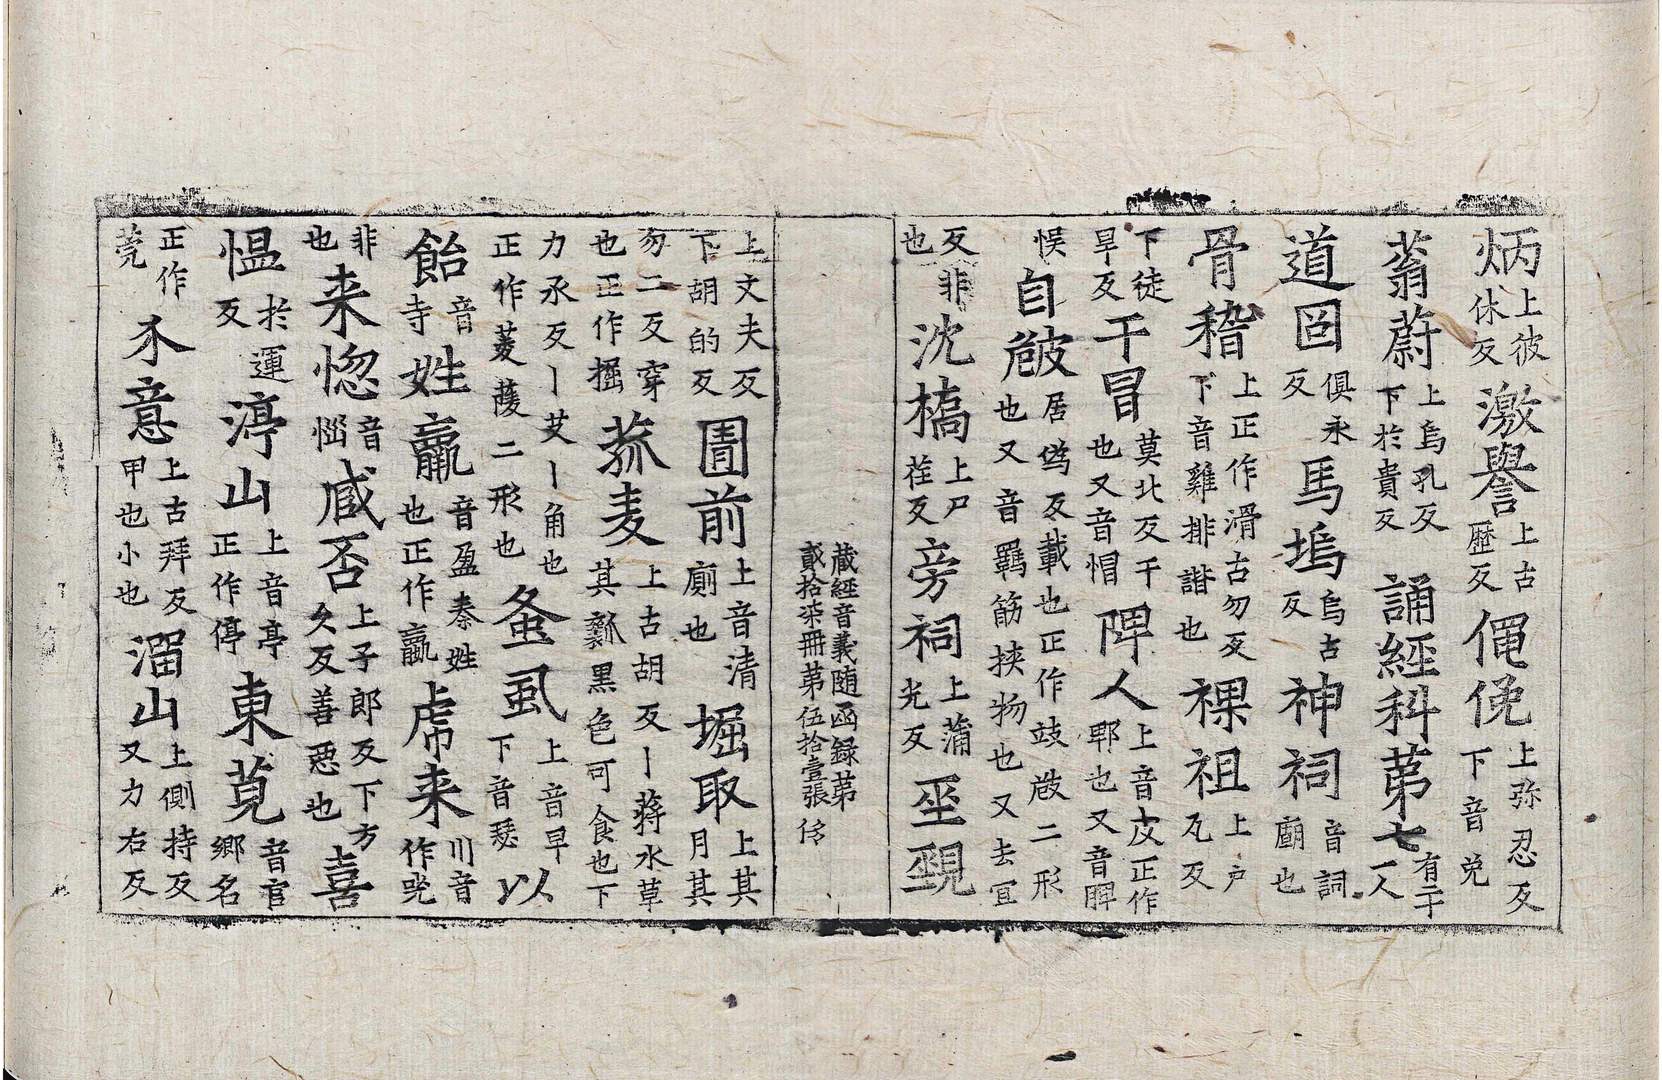 炳上彼休反激譽上古歷反僶俛上弥忍反下音免
蓊蔚上烏孔反下於貴反誦經科第七有二十一人
道囧俱永反馬塢烏古反神祠音詞廟也
骨稽上正作滑古勿反下音雞排諧也裸祖上戶瓦反
下徒旱反干冒莫北反干也又音帽陴人上音皮正作郫也又音脾
悞自㩻居偽反載也正作攱㩻二形也又音羇筋挾物也又去宜
反非也沈橋上尸荏反旁祠上蒲光反坙覡
藏經音義随函録第貳拾柒冊第伍拾壹張 侈
上文夫反下胡的反圊前上音清廁也堀取上其月其
勿二反穿也正作掘菰麦上古胡反丨蔣水草其䉼黑色可食也下
力承反丨芰丨角也正作菱䔖二形也蚤虱上音早下音瑟以
飴音寺姓羸音盈秦姓也正作嬴虏来川音作㖠
非也来惚音惱臧否上子郎反下方久反善惡也喜
愠於運反渟山上音亭正作停東莧音官鄉名
正作莞木意上古拜反甲也小也溜山上側持反又力右反